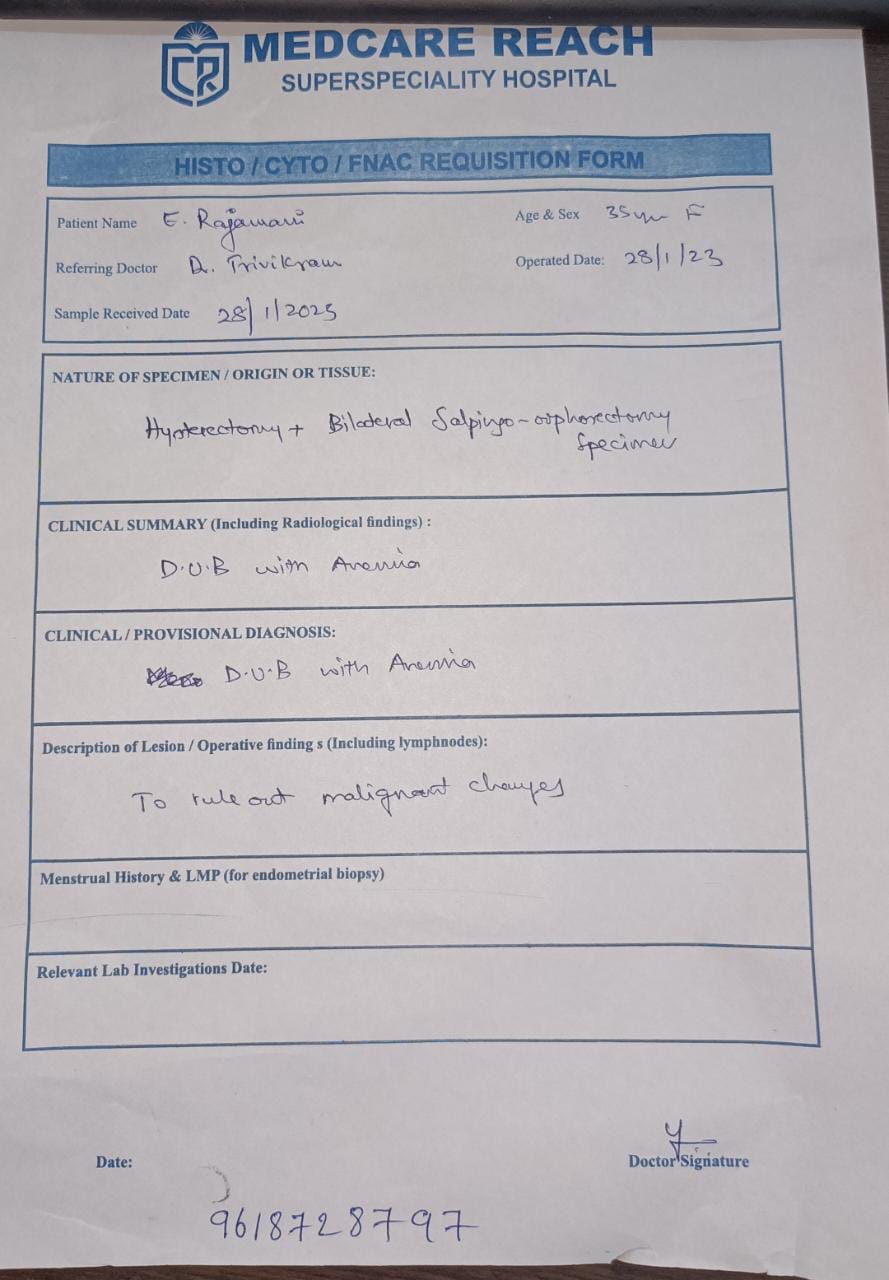 MEDCARE REACH
SUPERSPECIALITY HOSPITAL
HISTO / CYTO / FNAC REQUISITION FORM
Patient Name E. Rajamani Age & Sex 35yr F
Referring Doctor D. Trivikram Operated Date: 28/1/23
Sample Received Date 28/1/2025
NATURE OF SPECIMEN / ORIGIN OR TISSUE:
Hysterectomy + Bilateral Salpingo-oophorectomy
Specimen
CLINICAL SUMMARY (Including Radiological findings) :
D.U.B with Anemia
CLINICAL / PROVISIONAL DIAGNOSIS:
D.U.B with Anemia
Description of Lesion / Operative finding s (Including lymphnodes):
To rule out malignant changes
Menstrual History & LMP (for endometrial biopsy)
Relevant Lab Investigations Date:
Date: Doctor Signature
9618728797